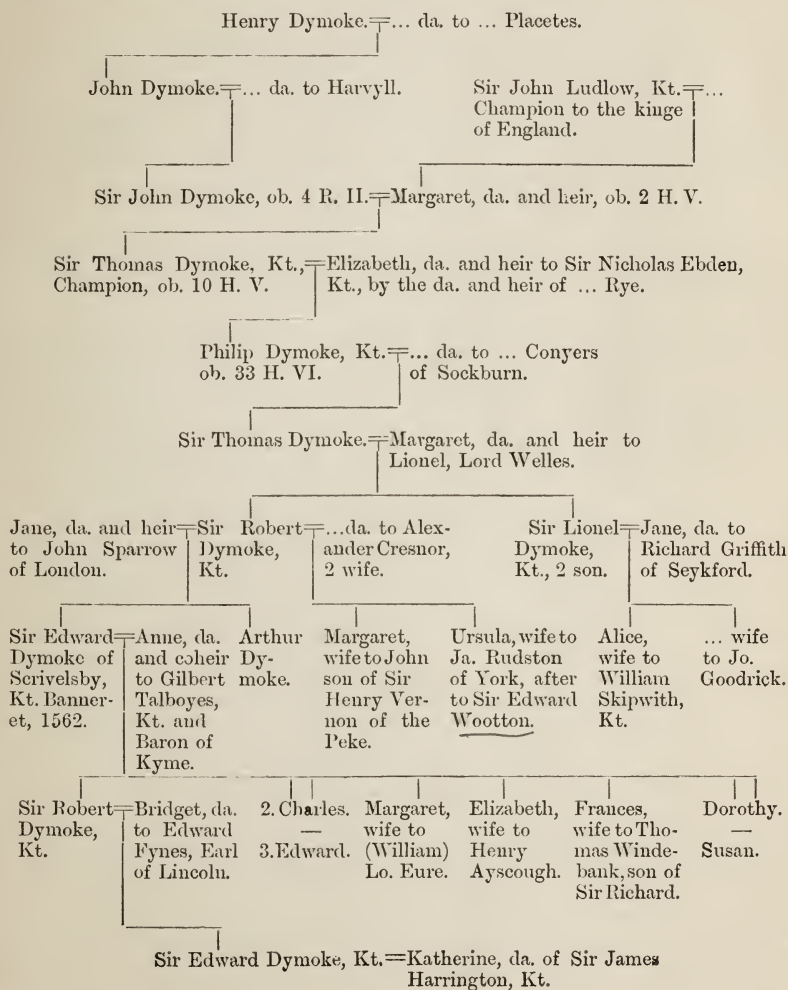 Henry Dymoke.=... da. to ... Placetes.
John Dymoke.=... da. to Harvyll.
Sir John Ludlow, Kt.=...
Champion to the kinge
of England.
Sir John Dymoke, ob. 4 R. II.=Margaret, da. and heir, ob. 2 H. V.
Sir Thomas Dymoke, Kt.,=Elizabeth, da. and heir to Sir Nicholas Ebden,
Champion, ob. 10 H. V. Kt., by the da. and heir of ... Rye.
Philip Dymoke, Kt.=... da. to ... Conyers
ob. 33 H. VI. of Sockburn.
Sir Thomas Dymoke.=Margaret, da. and heir to
Lionel, Lord Welles.
Jane, da. and heir=Sir Robert=...da. to Alex-
to John Sparrow Dymoke, ander Cresnor,
of London. Kt. 2 wife.
Sir Lionel=Jane, da. to
Dymoke, Richard Griffith
Kt., 2 son. of Seykford.
Sir Edward=Anne, da.
Dymoke of and coheir
Scrivelsby, to Gilbert
Kt. Banner- Talboyes,
et, 1562. Kt. and
Baron of
Kyme.
Arthur
Dy-
moke.
Margaret,
wife to John
son of Sir
Henry Ver-
non of the
Peke.
Ursula, wife to
Ja. Rudston
of York, after
to Sir Edward
Wootton.
Alice,
wife to
William
Skipwith,
Kt.
... wife
to Jo.
Goodrick.
Sir Robert=Bridget, da.
Dymoke, to Edward
Kt. Fynes, Earl
of Lincoln.
2. Charles.
—
3. Edward.
Margaret,
wife to
(William)
Lo. Eure.
Elizabeth,
wife to
Henry
Ayscough.
Frances,
wife to Tho-
mas Winde-
bank, son of
Sir Richard.
Dorothy.
—
Susan.
Sir Edward Dymoke, Kt.=Katherine, da. of Sir James
Harrington, Kt.